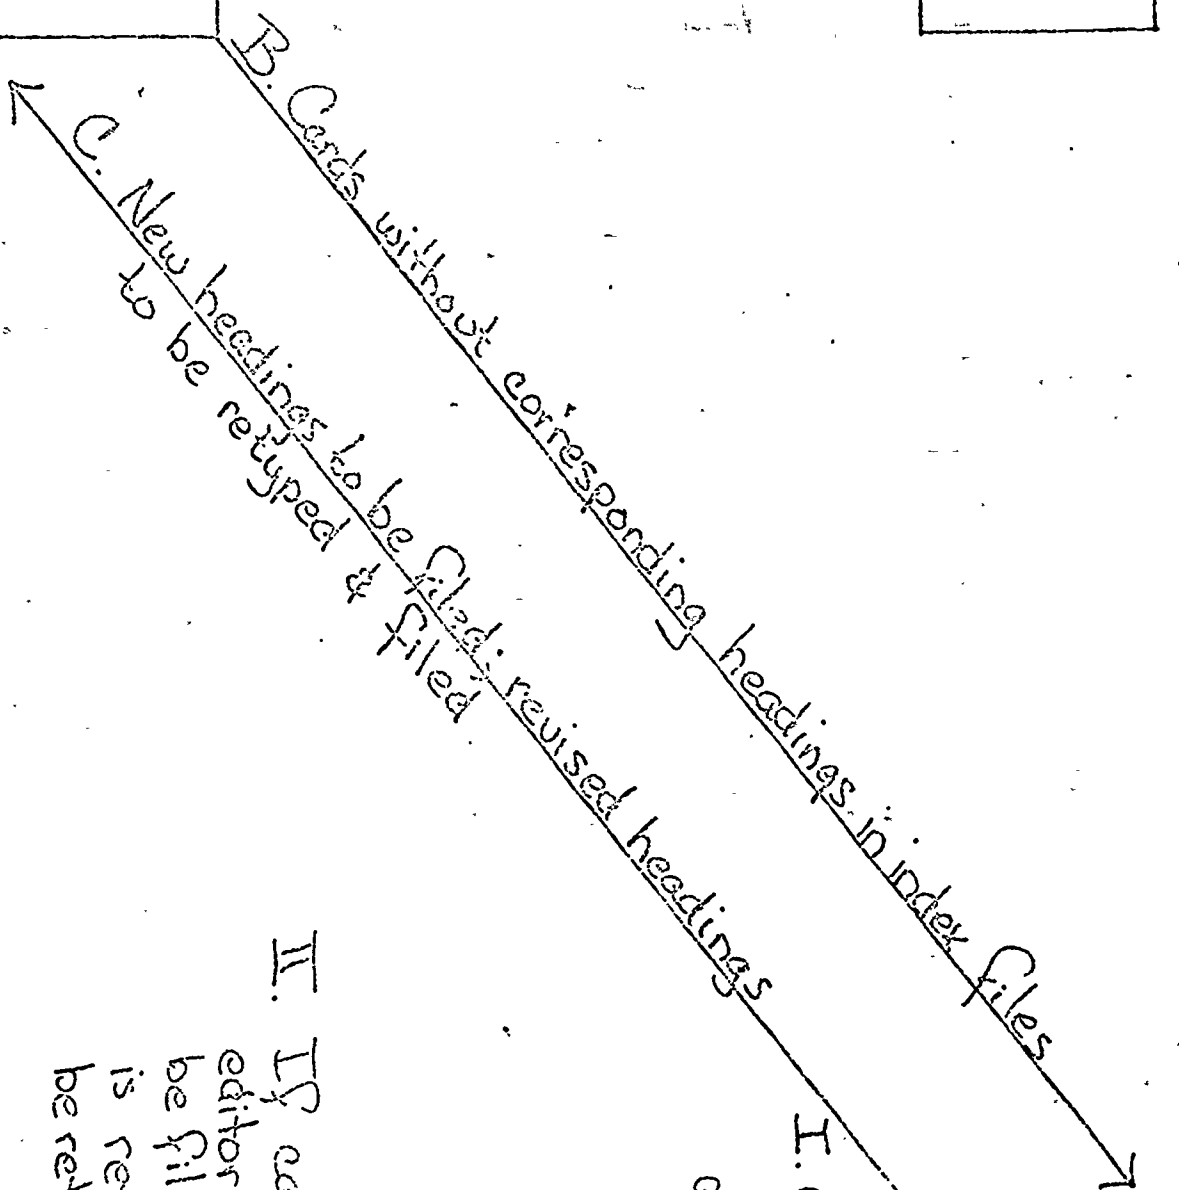 B. Cards without corresponding headings in index files
C. New headings to be filed; revised headings
to be retyped & filed
I.
II. If
editor
be
is
be